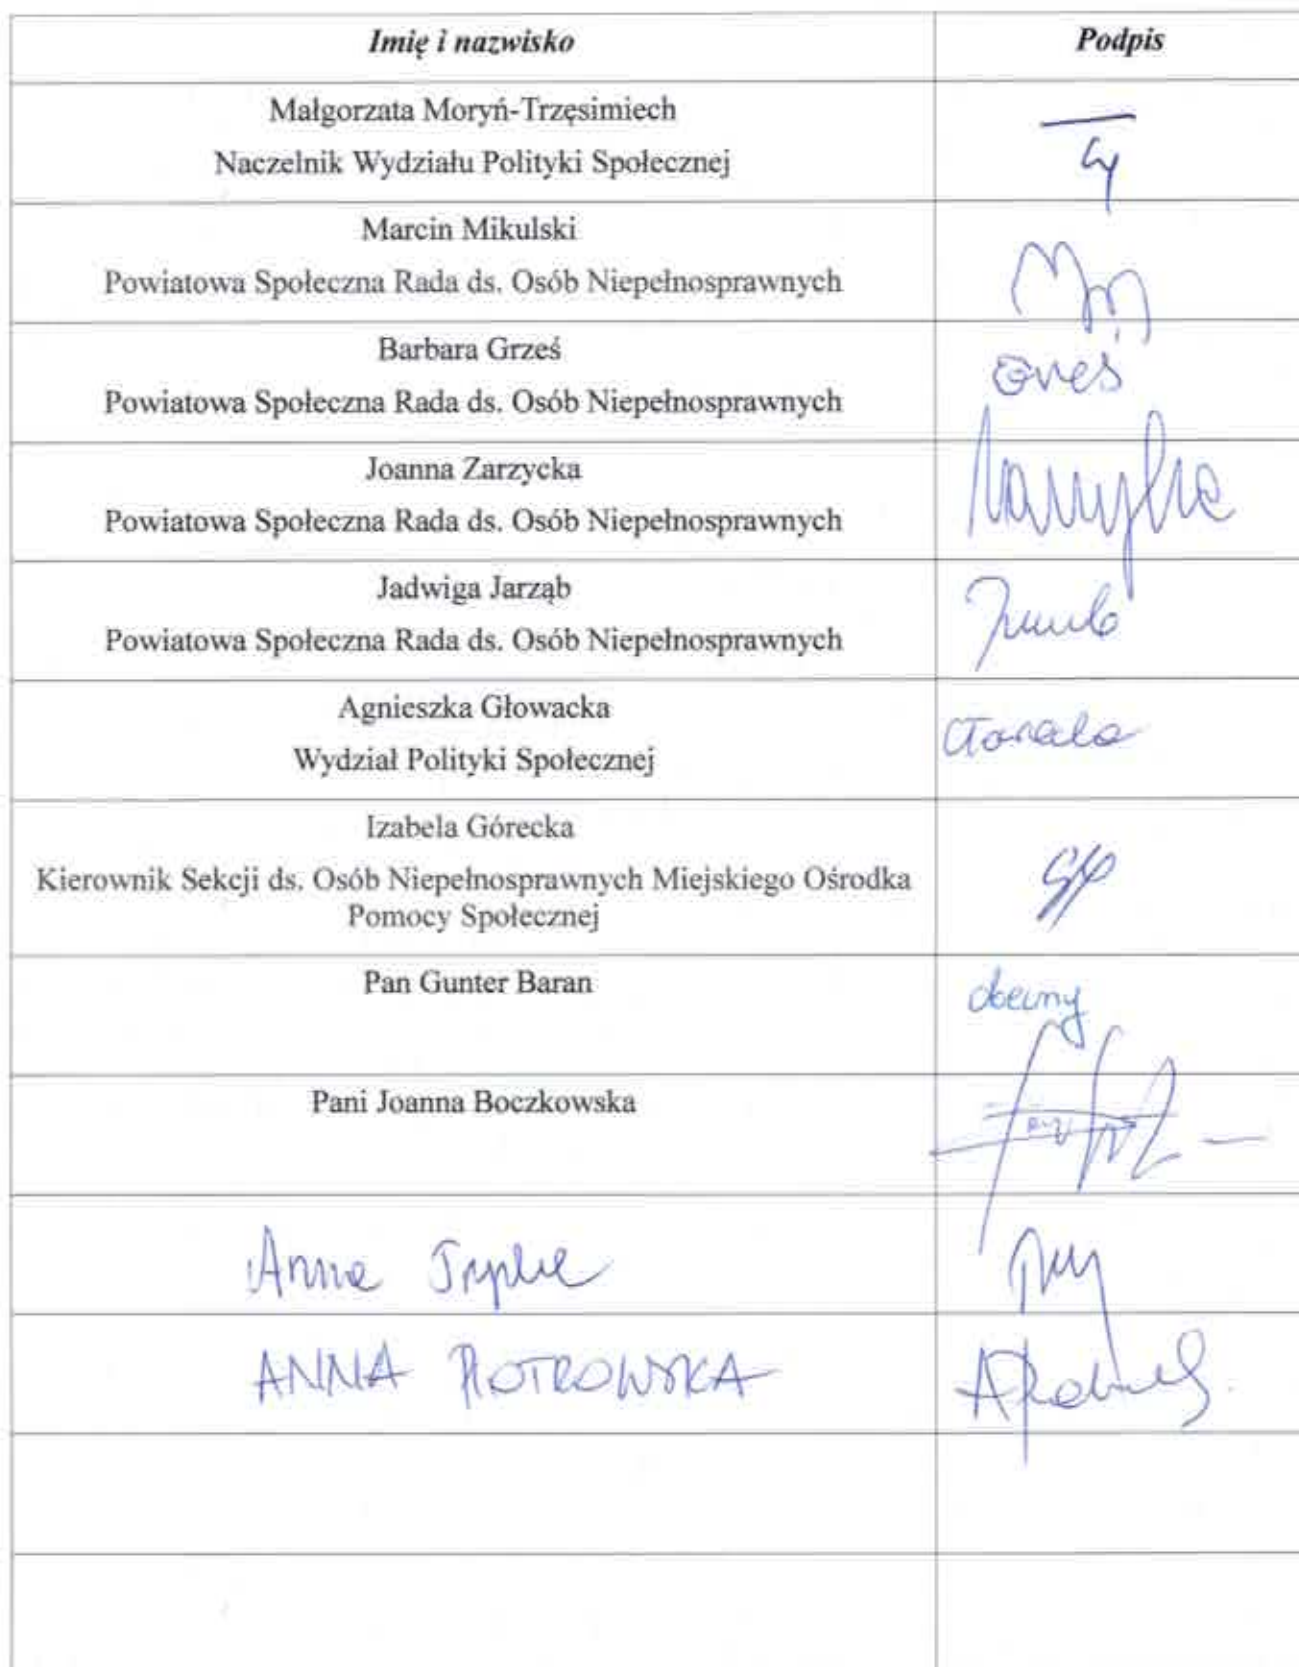 Imię i nazwisko Podpis
Małgorzata Moryń-Trzęsimiech
Naczelnik Wydziału Polityki Społecznej
Marcin Mikulski
Powiatowa Społeczna Rada ds. Osób Niepełnosprawnych
Barbara Grześ
Powiatowa Społeczna Rada ds. Osób Niepełnosprawnych
Joanna Zarzycka
Powiatowa Społeczna Rada ds. Osób Niepełnosprawnych
Jadwiga Jarząb
Powiatowa Społeczna Rada ds. Osób Niepełnosprawnych
Agnieszka Głowacka
Wydział Polityki Społecznej
Izabela Górecka
Kierownik Sekcji ds. Osób Niepełnosprawnych Miejskiego Ośrodka
Pomocy Społecznej
Pan Gunter Baran obecny
Pani Joanna Boczkowska
Anna
ANNA PIOTROWSKA